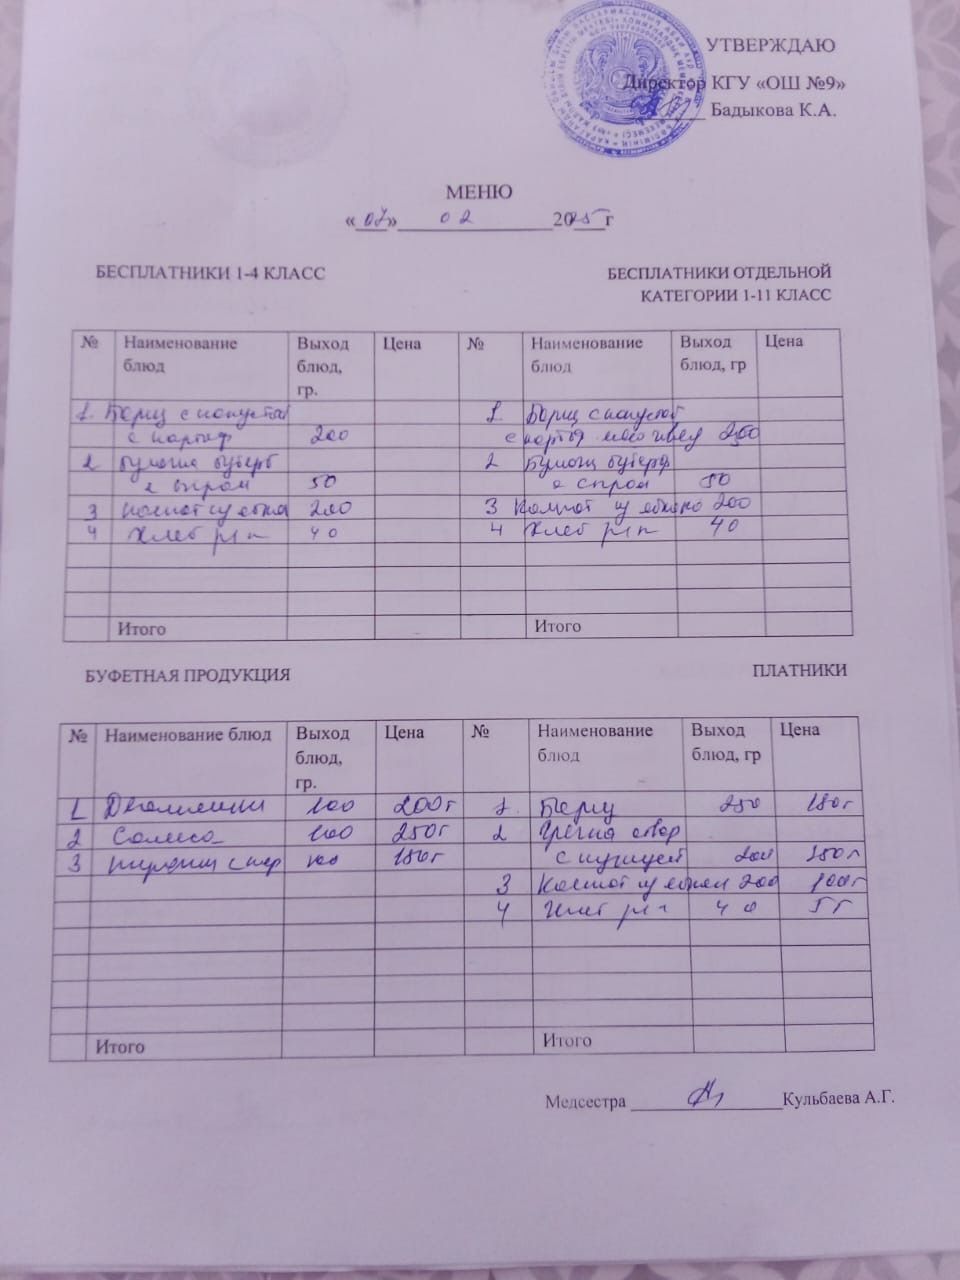 УТВЕРЖДАЮ
Директор КГУ «ОШ №9»
Бадыкова К.А.
МЕНЮ
«07» 02 2025г
БЕСПЛАТНИКИ 1-4 КЛАСС
БЕСПЛАТНИКИ ОТДЕЛЬНОЙ
КАТЕГОРИИ 1-11 КЛАСС
№ Наименование блюд Выход блюд, гр. Цена № Наименование блюд Выход блюд, гр Цена
1. Борщ с капустой 1. Борщ с капустой
с картоф 200 с картоф 250
2 бутерб 2 бутерб
с сыром 50 с сыром 50
3 Компот из яблок 200 3 Компот из яблок 200
4 Хлеб рж п 40 4 Хлеб рж п 40
Итого Итого
БУФЕТНАЯ ПРОДУКЦИЯ ПЛАТНИКИ
№ Наименование блюд Выход блюд, гр. Цена № Наименование блюд Выход блюд, гр Цена
1 100 200т 1. Борщ 250 180т
2 Самса 100 250т 2 Гречка отвар
3 100 180т с курицей 200 350т
3 Компот из яблок 200 100т
4 Хлеб рж п 40 5т
Итого Итого
Медсестра Кульбаева А.Г.